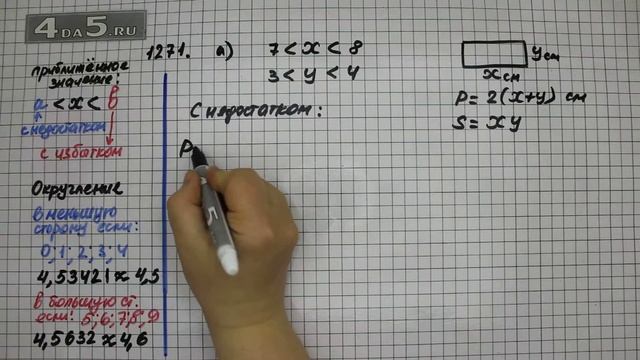 4DA5.RU
Приближённое
значение:
a < x < b
с недостатком
с избытком
Округление
в меньшую
сторону если:
0; 1; 2; 3; 4
4,53421 ≈ 4,5
в большую ст.
если: 5; 6; 7; 8; 9
4,5632 ≈ 4,6
1271. а) 7 < x < 8
3 < y < 4
С недостатком:
P
y см
x см
P = 2(x+y) см
S = xy